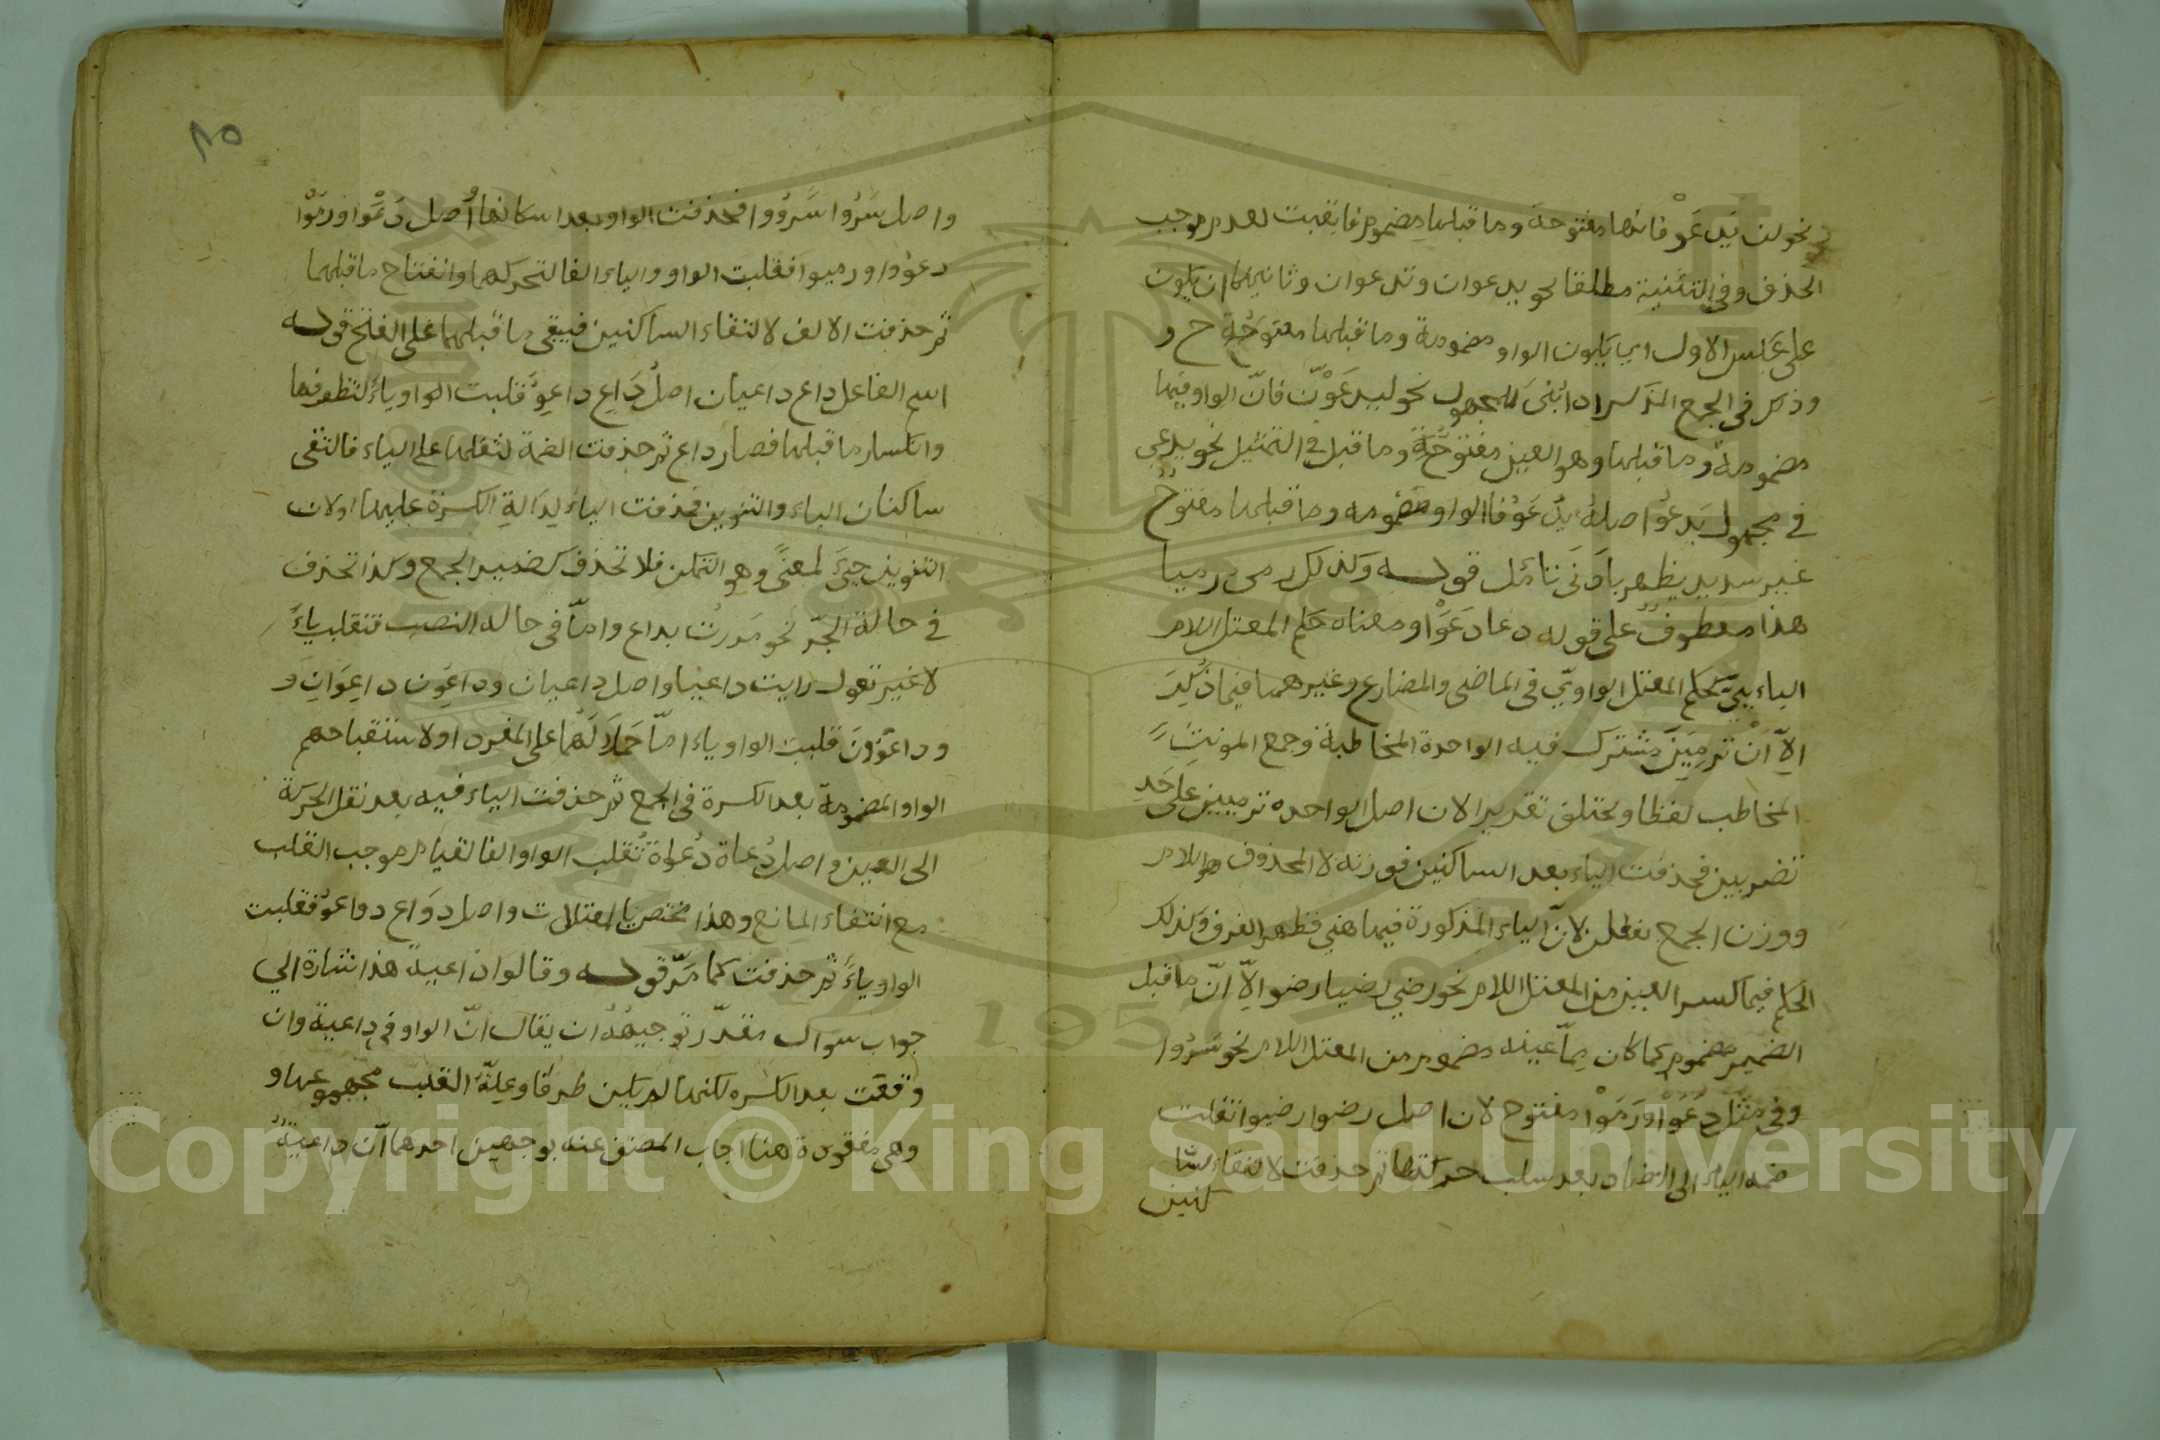 نحو لن يَدعَوْ فانها مفتوحة وما قبلها مضموم فابقيت لعدم موجب
الحذف وفي التثنية مطلقا نحو يدعوان وتدعوان وثانيهما ان يكون
على عكس الاول اي يكون الواو مضمومة وما قبلها مفتوحة ح و
وذلك في الجمع المذكر اذا بُنىَ للمجهول نحو ليدعَوُنّ فانّ الواو فيها
مضمومة وما قبلها وهو العين مفتوحةٌ وما قيل في التمثيل نحو يدعي
في مجهول يَدعوُ اصله يُدْعَوُ فالواو مضمومه وما قبلها مفتوحٌ
غير سديد يظهر باَدنَى تأمل قوله وكذلك رمى رميا
هذا معطوفٌ على قوله دعا دَعَوْا ومعناه حكم المعتل اللام
اليائيّ كحكم المعتل الواويّ في الماضي والمضارع وغيرهما فيما ذُكِرَ
الاّ انْ ترمِيَن مشترك فيه الواحدة المخاطبة وجمع المونث
المخاطب لفظا ومختلق تقديرا لان اصل الواحده ترميين على حَدِ
تضربين فحذفت الياء بعد الساكنين فوزنه لا المحذوف هو اللام
ووزن الجمع تفعلن لانّ الياء المذكورة فيها هني فظهر الفرق وكذلك
الحكم فيما كسر العين من المعتل اللام نحو رضي رضيا رضوا الاّ انّ ما قبل
الضمير مضموم كما كان مِمّا عينه مضموم من المعتل اللام نحو سَرُوا
وفي مثل دَعَوْا ورَمَوْا مفتوح لان اصل رضوا رضيوا نقلت
ضمه الياء الى الضاد بعد سلب حركتها ثم حذفت لالتقاء السا
كنين
٨٥
واصل سَرُوا سَرُوُوا فحذفت الواو بعد اسكانها واَصل دَعَوْا ورَمَوْا
دعوُوا ورميوا فقلبت الواو والياء الفا لتحركهما وانفتاح ما قبلهما
ثم حذفت الالف لالتقاء الساكنين فيبقى ما قبلهما على الفتح قوله
اسم الفاعل داع داعيان اصلُ دَاعٍ داعِوٌ قلبت الواو ياءً لتطرفها
وانكسار ما قبلها فصار داع ثم حذفت الضمة لثقلها على الياء فالتقى
ساكنان الياء والتنوين فحذفت الياءُ لِدَالةِ الكسرة عليها ولان
التنوين جئَ لمعنىً وهو التمكن فلا تحذف كضمير الجمع وكذا تحذف
في حالة الجرّ نحو مَررت بداع وامّا في حاله النصب فتنقلب ياءً
لا غير تقول رايت داعيا واصل داعيان وداعُون داعِوَانِ و
وداعوُونَ قلبت الواو ياء امّا حَملاً لَهُما على المفرد او لاستثقباحهم
الواو المضمومة بعد الكسرة في الجمع ثم حذفت الياء فيه بعد نقل الحركة
الى العين واصل دُعاة دُعَوَة تُقلب الواو الفا لقيام موجب القلب
مع انتفاء المانع وهذا مختص بالمعتلات واصل دَوَاعٍ دواعِوٌ فقلبت
الواو ياءً ثم حذفت كما مَرّ قوله وقالوا داعية هذا اشارة الى
جواب سوال مقدّر توجيهُهُ ان يقال انّ الواو في داعية وان
وقعَت بعد الكسره لكنها لم يكن طرفا وعلّة القلب مجموعهما و
وهي مفقودة هنا اجاب المصنف عنه بوجهين احدهما انّ داعيةٌ
Copyright © King Saud University
1957